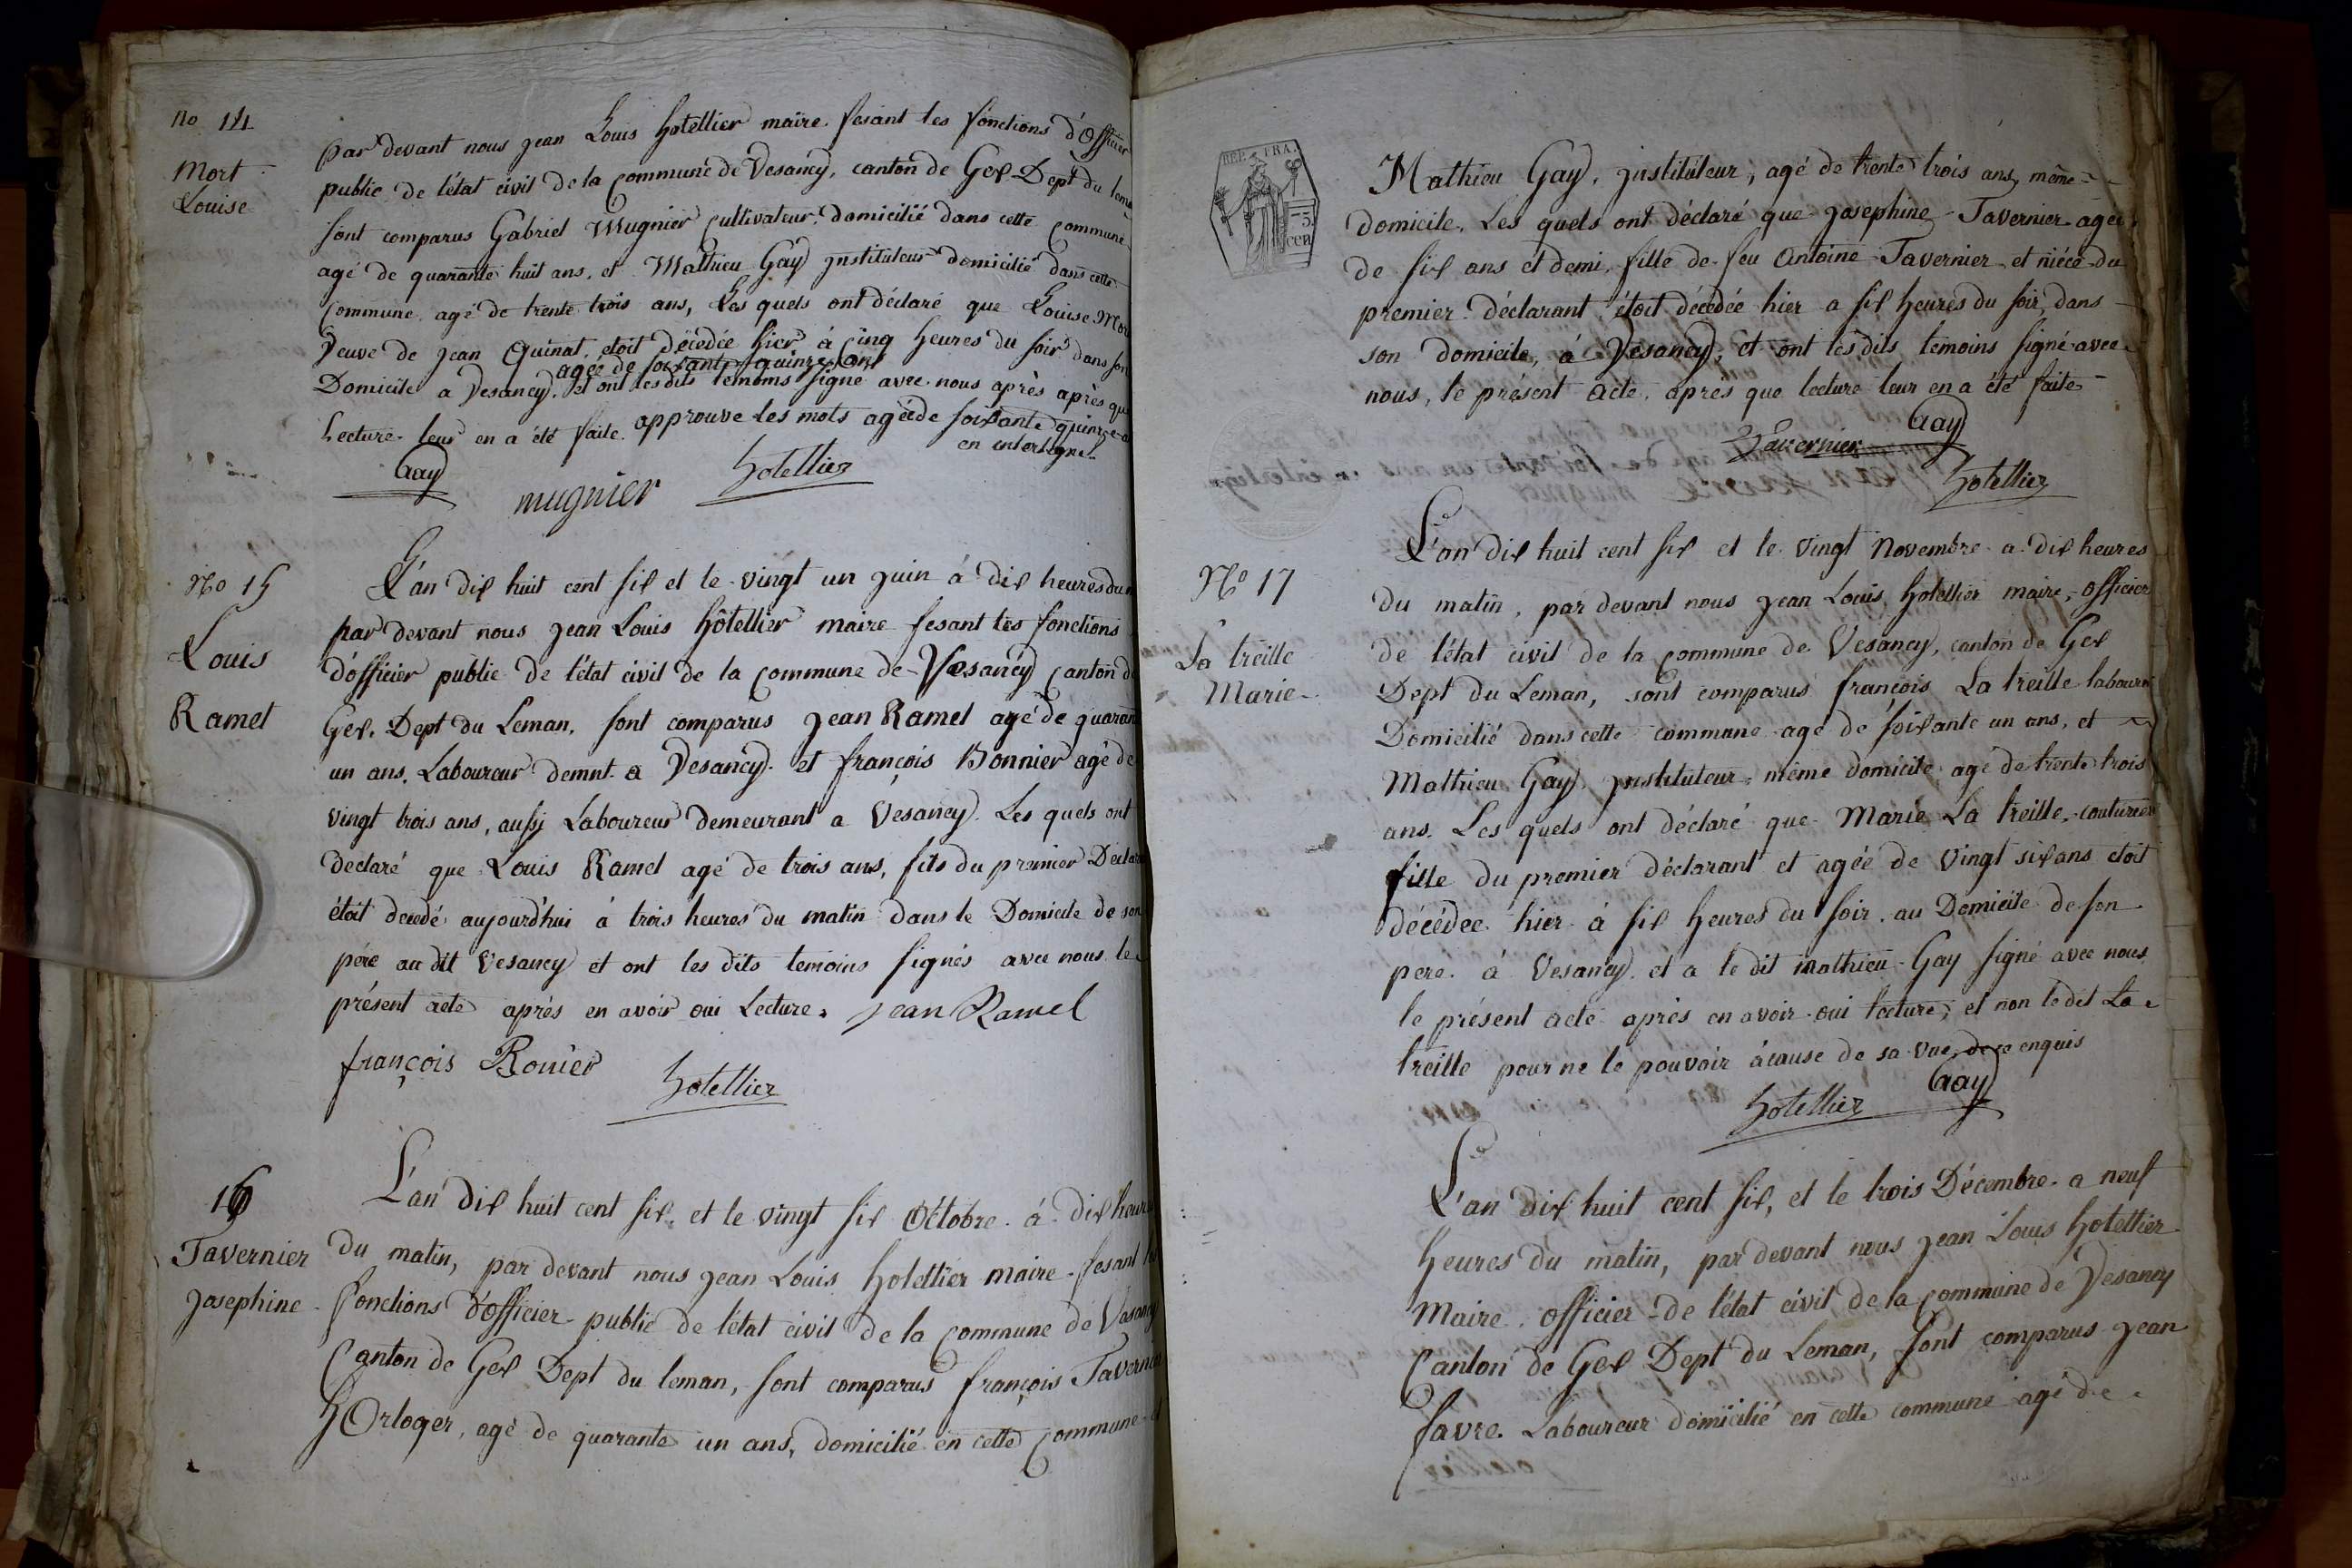 No 14
Mort
Louise
par devant nous jean Louis hotellier maire fesant les fonctions d'officier
public de l'état civil de la commune de Vesancy, canton de Gex Dept du
sont comparus Gabriel Mugnier cultivateur domicilié dans cette commune
agé de quarante huit ans, et Mathieu Gay jnstituteur domicilié dans cette
commune agé de trente trois ans, Les quels ont déclaré que Louise
Veuve de jean Quinat, etoit décédée hier à cinq heures du soir dans son
agée de soixante quinze ans
Domicile a Vesancy. et ont les dits temoins signé avec nous après après que
Lecture leur en a été faite. approuve les mots agée de soixante quinze
en interligne
Gay
mugnier
hotellier
No 15
Louis
Ramel
L'an dix huit cent six et le vingt un juin à dix heures du
par devant nous jean Louis hôtellier maire fesant les fonctions
d'officier public de l'état civil de la commune de Vesancy canton
Gex. Dept du Leman, sont comparus jean Ramel agé de
un ans, Laboureur demnt a Vesancy. et françois Bonnier agé de
vingt trois ans, aussj Laboureur demeurant a Vesancy. Les quels ont
declaré que Louis Ramel agé de trois ans, fils du premier
étoit decedé aujourd'hui à trois heures du matin dans le Domicile de son
père au dit Vesancy et ont les dits temoins signés avec nous le
présent acte après en avoir oui Lecture. jean Ramel
françois Bonier
hotellier
16
Tavernier
josephine
L'an dix huit cent six, et le vingt six octobre à dix heures
du matin, par devant nous jean Louis hotellier maire fesant
fonctions d'officier public de l'état civil de la commune de Vesancy
Canton de Gex Dept du leman, sont comparus françois Tavernier
hOrloger, agé de quarante un ans, domicilié en cette commune
REP. FRA.
75
cen
Mathieu Gay, jnstituteur, agé de trente trois ans, même
domicile. Les quels ont déclaré que josephine Tavernier agée
de six ans et demi, fille de feu Antoine Tavernier et nièce du
premier déclarant étoit décédée hier a six heures du soir, dans
son domicile, à Vesancy, et ont lesdits temoins signé avec
nous, le présent acte, après que lecture leur en a été faite
Gay
Tavernier
hotellier
No 17
La treille
Marie
L'an dix huit cent six et le vingt Novembre a dix heures
du matin, par devant nous jean Louis hotellier maire, officier
de l'état civil de la commune de Vesancy, canton de Gex
Dept du Leman, sont comparus françois La treille
Domicilié dans cette commune agé de soixante un ans, et
Mathieu Gay jnstituteur, même domicile agé de trente trois
ans. Les quels ont déclaré que Marie La treille, couturière
fille du premier déclarant et agée de vingt six ans etoit
décédée hier à six heures du soir au Domicile de son
pere à Vesancy. et a le dit mathieu Gay signé avec nous
le présent acte après en avoir oui lecture, et non ledit La
treille pour ne le pouvoir àcause de sa vue, de ce enquis
Gay
hotellier
L'an dix huit cent six, et le trois Décembre a neuf
heures du matin, par devant nous jean Louis hotellier
Maire officier de l'état civil de la commune de Vesancy
Canton de Gex Dept du Leman, sont comparus jean
favre. Laboureur domicilié en cette commune agé de